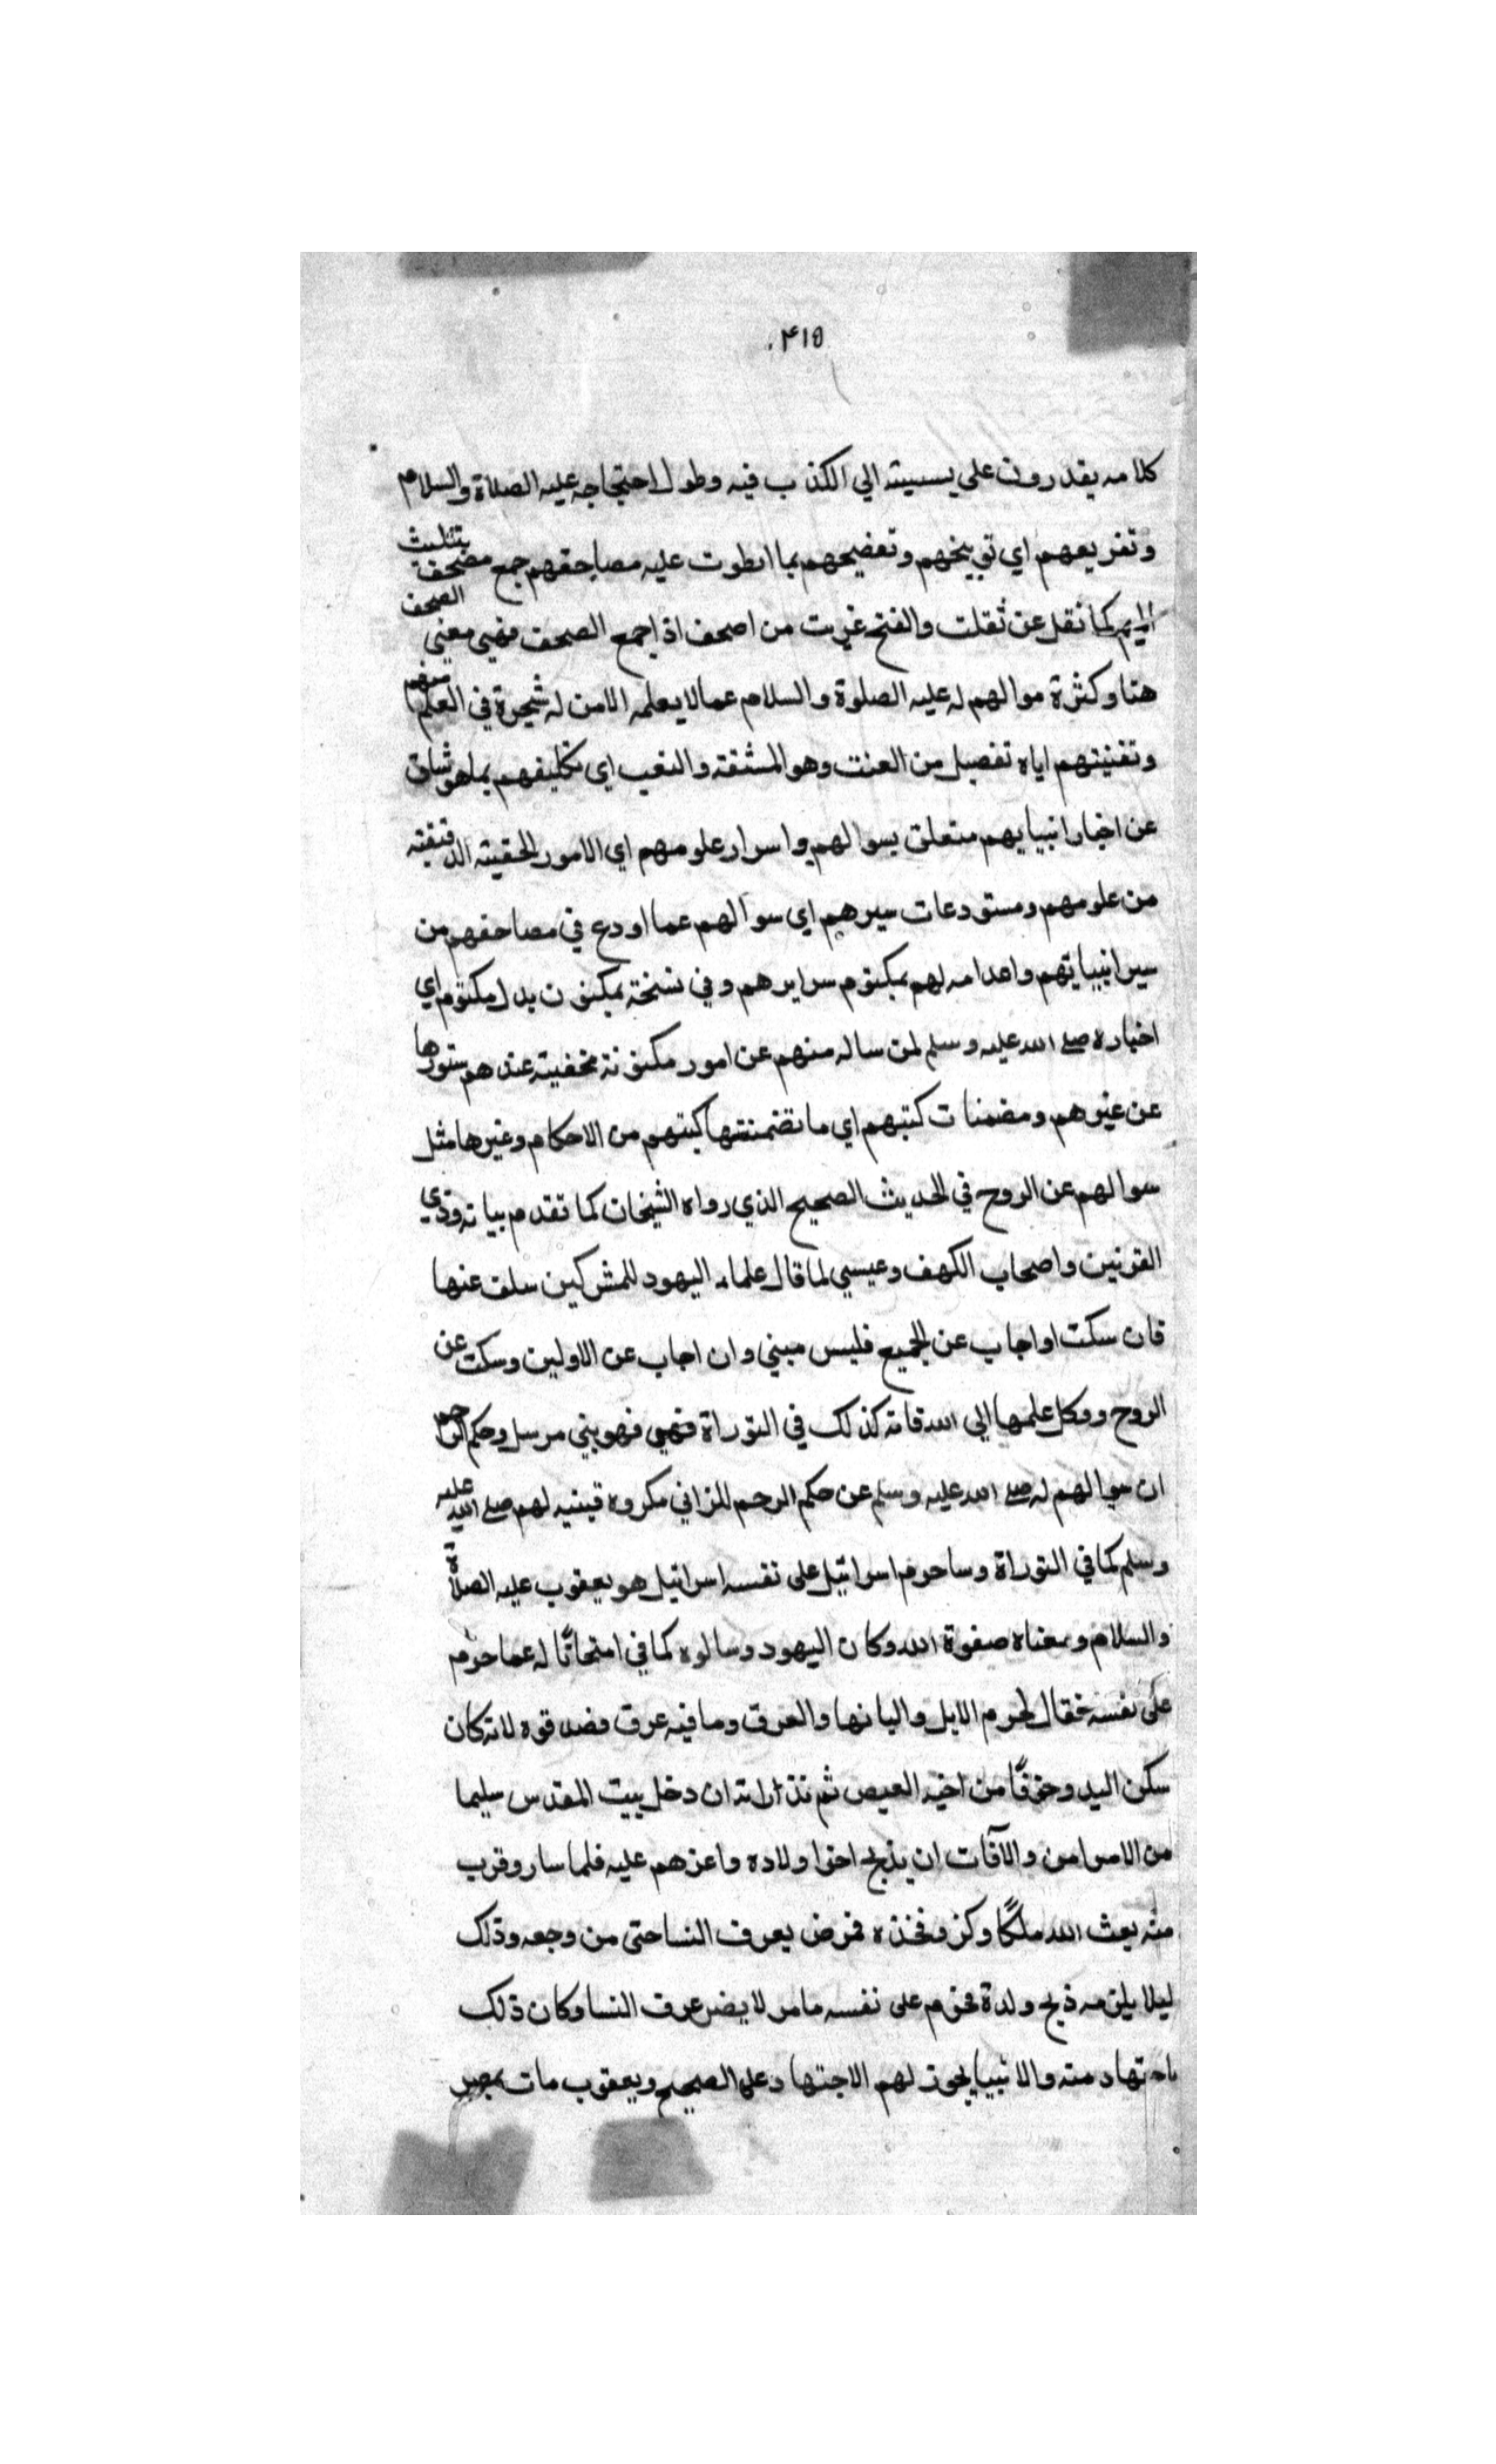 ٤١٥
كلامه يقدرون على يسبيته الي الكذب فيه وطول احتجاجه عليه الصلاة والسلام
وتفريعهم اي توبيخهم وتفضيحهم بما انطوت عليه مصاحفهم جمع مصحف بتثليث
الميم كما نقل عن ثقلت والفتح غريت من اصحف اذا جمع الصحف فهي معني الصحف
هنا وكثرة سوالهم له عليه الصلوة والسلام عما لا يعلمه الا من له شجرة في العلم منهم
وتفنيتهم اياه تفصيل من العنت وهو المشقة والتعب اي تكليفهم بما هو شاق
عن اخبار انبيايهم متعلق بسوالهم واسرار علومهم اي الامور الحقيته الدقيقته
من علومهم ومستودعات سيرهم اي سوالهم عما اودع في مصاحفهم من
سير انبيايهم واعدامه لهم بمكتوم سرايرهم وفي نسخة بمكنون بدل مكتوم اي
اخباره صلى الله عليه وسلم لمن ساله منهم عن امور مكنونة مخفيته عندهم ستورها
عن غيرهم ومضمنات كتبهم اي ما تضمنتها كتبهم من الاحكام وغيرها مثل
سوالهم عن الروح في الحديث الصحيح الذي رواه الشيخان كما تقدم بيانه وذي
القرنين واصحاب الكهف وعيسي لما قال علماء اليهود للمشركين سلف عنها
فان سكت او اجاب عن الجميع فليس مبني وان اجاب عن الاولين وسكت عن
الروح ووكل علمها الي الله فانه كذلك في التوراة فهي فهو بني مرسل وحكم الرجم
ان سوالهم له صلى الله عليه وسلم عن حكم الرجم للزاني مكروه فبينه لهم صلى الله عليه
وسلم كما في التوراة وما حرم اسرائيل على نفسه اسرائيل هو يعقوب عليه الصلاة
والسلام ومعناه صفوة الله وكان اليهود وسالوه كما في امتحانا له عما حرم
على نفسه فقال لحرم الابل والبانها والعرق وما فيه عرق فصدقوه لانه كان
سكن اليد وخوفا من اخيه العيص ثم نذر انه ان دخل بيت المقدس سليما
من الامراض والآفات ان يذبح اخر اولاده واعزهم عليه فلما سار وقرب
منه بعث الله ملكا وكز فخذه فمرض بعرف النسا حتى من وجعه وذلك
ليلا يلزمه ذبح ولدة فحرم على نفسه ما مر لا يضر عرف النسا وكان ذلك
باجتهاد منه والانبيا يجوز لهم الاجتهاد على الصحيح ويعقوب مات بمصر